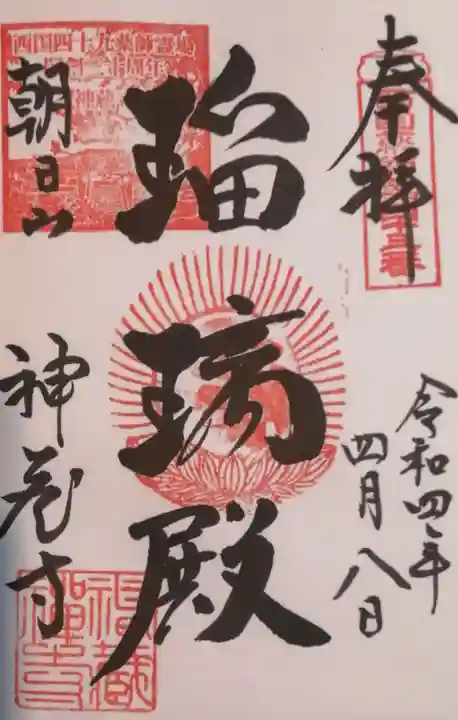 奉拝
令和四年
四月八日
瑠璃殿
朝日山
神蔵寺
西国四十九薬師霊場